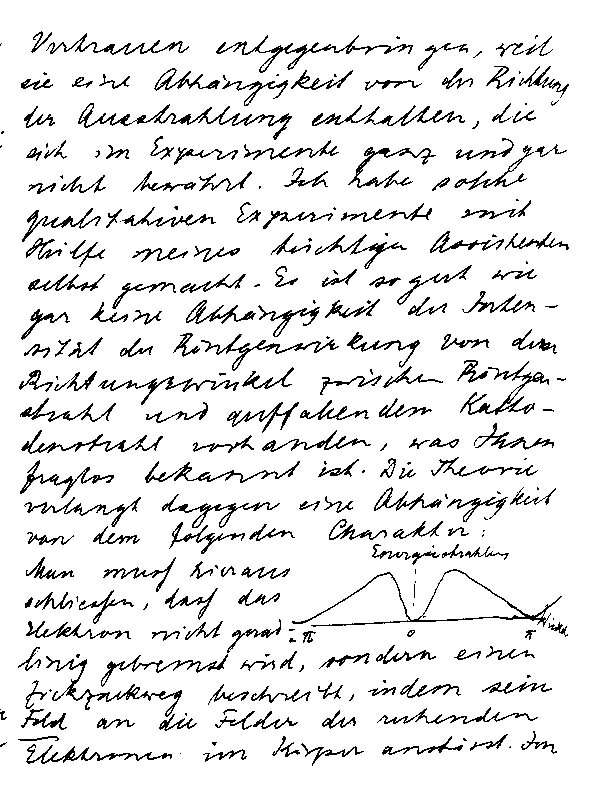 Vertrauen entgegenbringen, weil
sie eine Abhängigkeit von der Richtung
der Ausstrahlung enthalten, die
sich im Experimente ganz und gar
nicht bewährt. Ich habe solche
qualitativen Experimente mit
Hülfe meines tüchtigen Assistenten
selbst gemacht. Es ist so gut wie
gar keine Abhängigkeit der Inten-
sität der Röntgenwirkung von dem
Richtungswinkel zwischen Röntgen-
strahl und auffallendem Katho-
denstrahl vorhanden, was Ihnen
fraglos bekannt ist. Die Theorie
verlangt dagegen eine Abhängigkeit
von dem folgenden Charakter:
Energiestrahlung
Man muss hieraus
schliessen, dass das
Elektron nicht gerad-
-π 0 π Winkel
linig gebremst wird, sondern einen
Zickzackweg beschreibt, indem sein
Feld an die Felder der ruhenden
Elektronen im Körper anstösst. Im